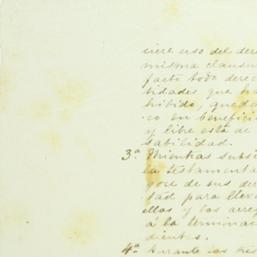 ciere uso del der
misma clausu
facto todo derec
tidades que ha
hibido, queda
co en benefici
y libre está de
sabilidad.
3ª Mientras subsi
la testamenta
goce de sus der
tad para lleva
ellas y los arreg
á la termina
dientes.
4ª Durante los tres